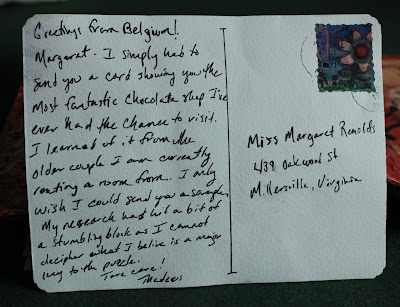 Greetings from Belgium!
Margaret - I simply had to
send you a card showing you the
most fantastic chocolate shop I've
ever had the chance to visit.
I learned of it from the
older couple I am currently
renting a room from. I only
wish I could send you a sample.
My research had hit a bit of
a stumbling block as I cannot
decipher what I belive is a major
key to the puzzle.
Take care!
Miss Margaret Renolds
439 Oakwood St
Millersville, Virginia